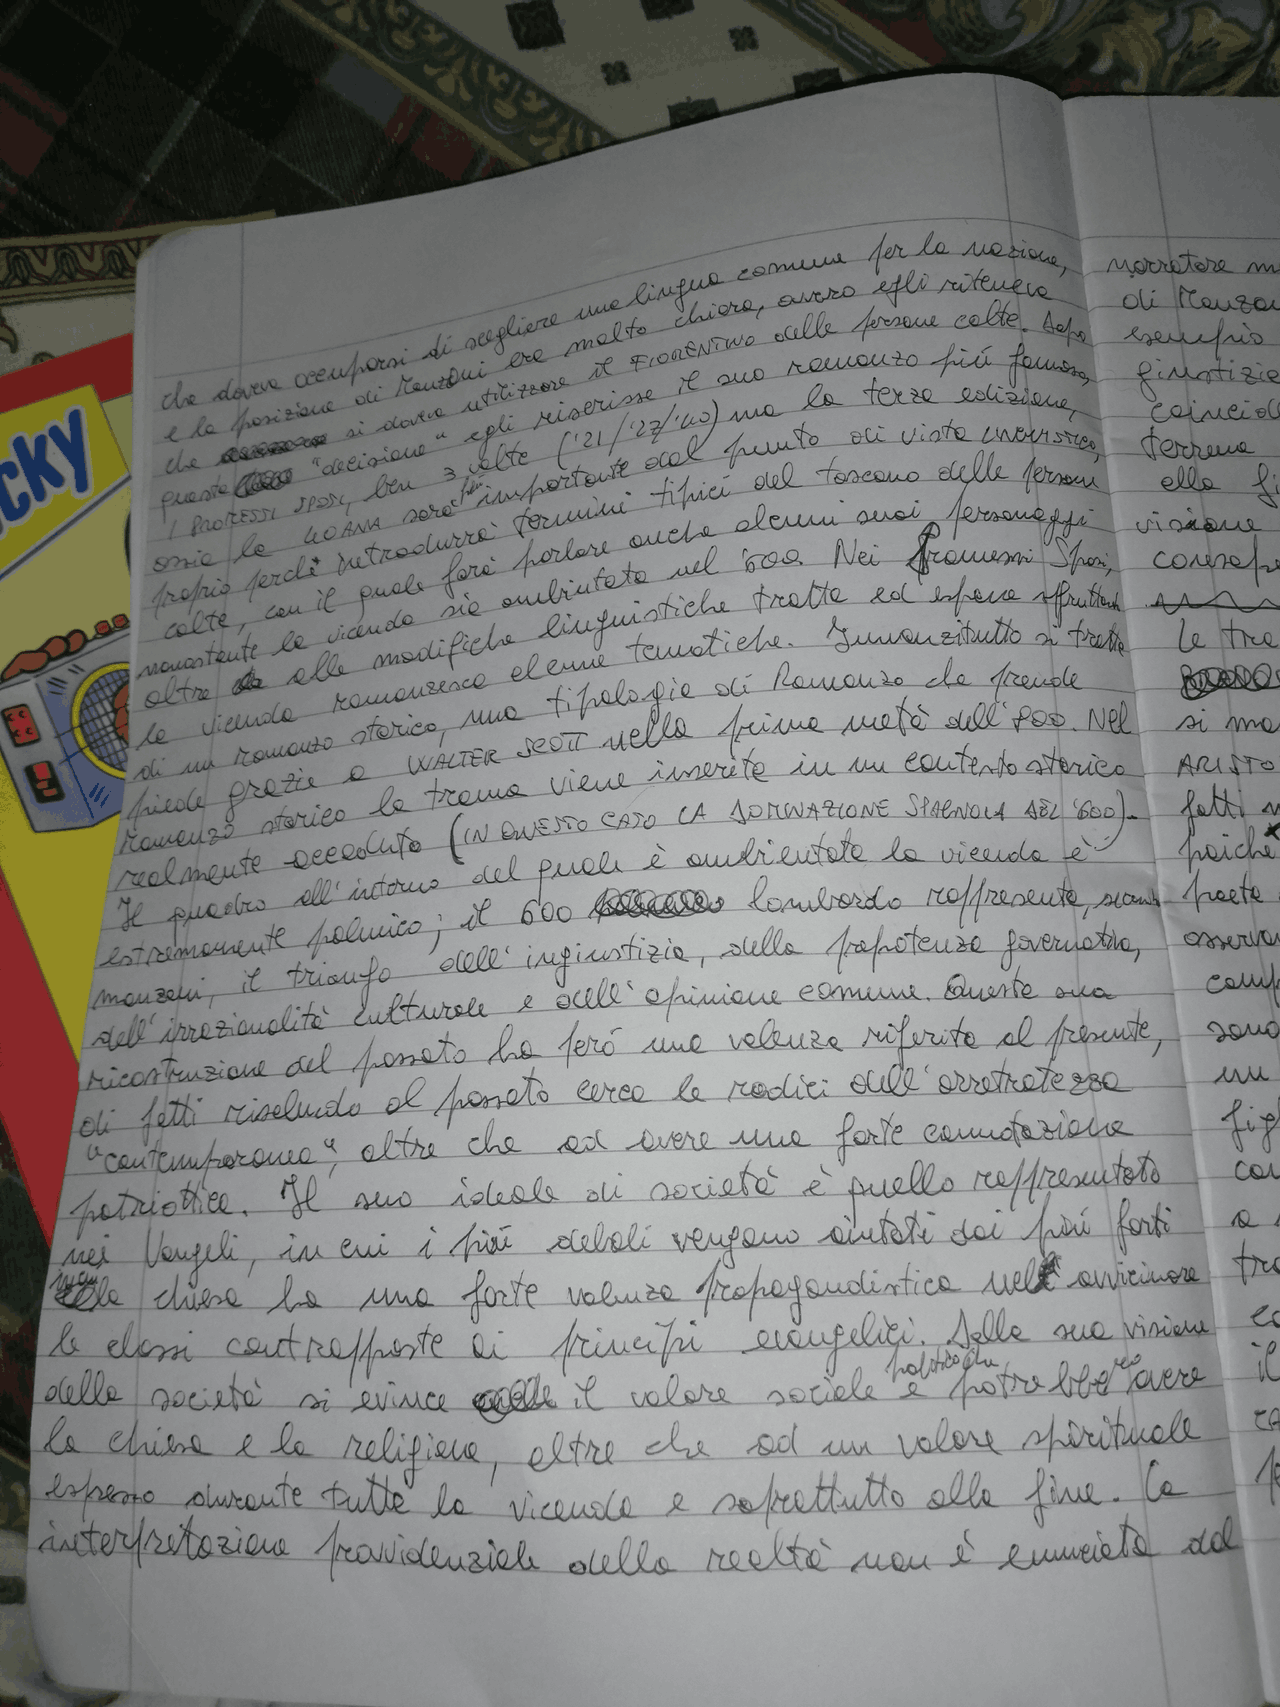 che doveva occuparsi di scegliere una lingua comune per la nazione,
e la posizione di Manzoni era molto chiara, ovvero egli riteneva
che si doveva utilizzare il FIORENTINO delle persone colte. Dopo
questa "decisione" egli riscrisse il suo romanzo più famoso,
I PROMESSI SPOSI, ben 3 volte ('21/'27/'40) ma la terza edizione,
ossia la 40ANA sarà più importante dal punto di vista LINGUISTICO,
proprio perché introdurrà termini tipici del toscano delle persone
colte, con il quale farà parlare anche alcuni suoi personaggi
nonostante la vicenda sia ambientata nel '600. Nei Promessi Sposi,
oltre alle modifiche linguistiche tratta ed espone sfruttando
la vicenda romanzesca alcune tematiche. Innanzitutto si tratta
di un romanzo storico, una tipologia di Romanzo che prende
piede grazie a WALTER SCOTT nella prima metà dell'800. Nel
romanzo storico la trama viene inserita in un contesto storico
realmente accaduto (IN QUESTO CASO LA DOMINAZIONE SPAGNOLA DEL '600).
Il quadro all'interno del quale è ambientata la vicenda è
estremamente polemico; il 600 lombardo rappresenta, secondo
manzoni, il trionfo dell'ingiustizia, della prepotenza governativa,
dell'irrazionalità culturale e dell'opinione comune. Questa sua
ricostruzione del passato ha peró una valenza riferita al presente,
di fatti risalendo al passato cerca le radici dell'arretratezza
"contemporanea", oltre che ad avere una forte connotazione
patriottica. Il suo ideale di società è quello rappresentato
nei Vangeli, in cui i più deboli vengono aiutati dai più forti
la chiesa ha una forte valenza propagandistica nell'avvicinare
le classi contrapposte ai principi evangelici. Dalla sua visione
della società si evince il valore sociale e politico che potrebbero avere
la chiesa e la religione, oltre che ad un valore spirituale
espresso durante tutta la vicenda e soprattutto alla fine. La
interpretazione provvidenziale della realtà non è enunciata dal
narratore
di Manzoni
esempio
giustizia
terrena
visione
le
si
ARISTO
fatti
poiché
un
a
il
cky